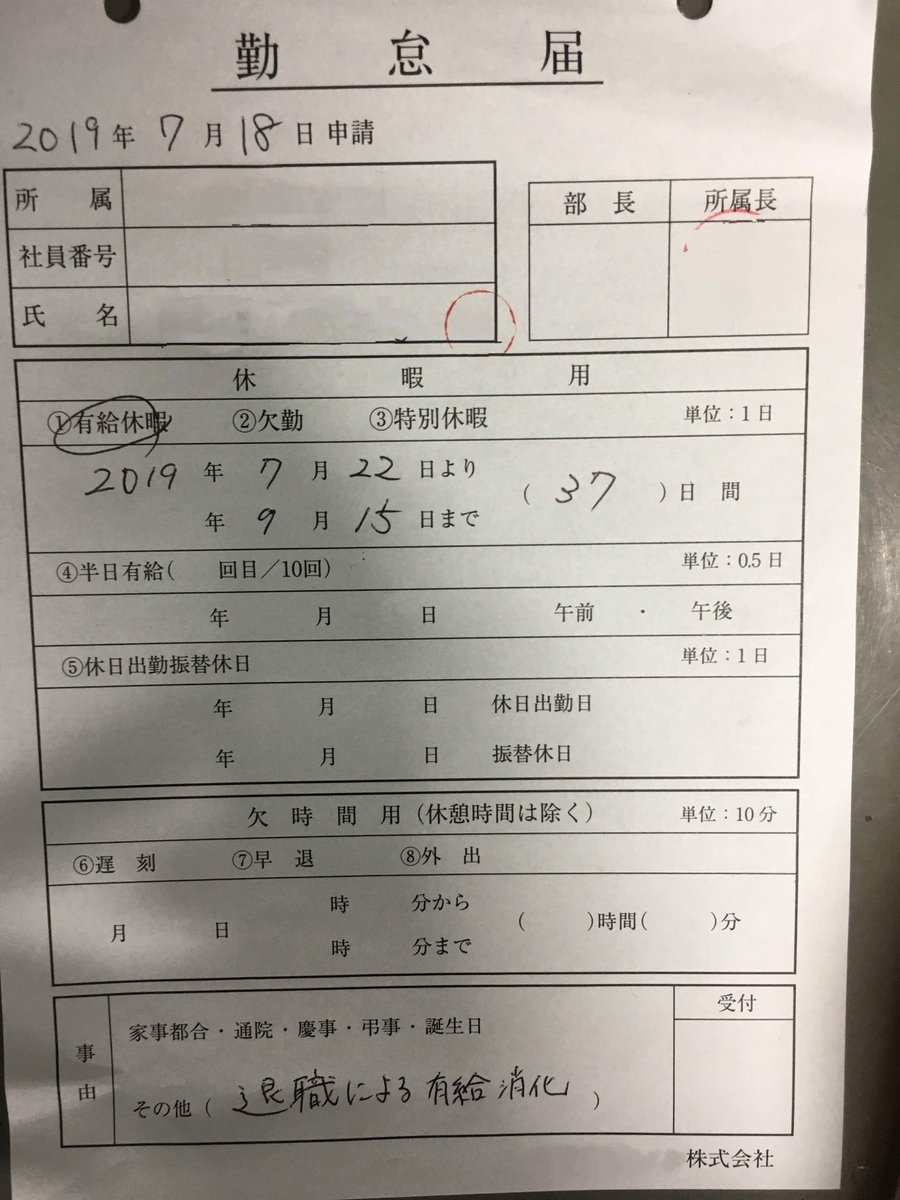 勤怠届
2019年 7月 18日 申請
所属
社員番号
氏名
部長 所属長
休暇用
①有給休暇 ②欠勤 ③特別休暇 単位：1日
2019年 7月 22日より
年 9月 15日まで
( 37 )日間
④半日有給( 回目／10回) 単位：0.5日
年 月 日 午前 ・ 午後
⑤休日出勤振替休日 単位：1日
年 月 日 休日出勤日
年 月 日 振替休日
欠時間用(休憩時間は除く) 単位：10分
⑥遅刻 ⑦早退 ⑧外出
月 日
時 分から
時 分まで
( )時間( )分
事由
家事都合・通院・慶事・弔事・誕生日
その他( 退職による有給消化 )
受付
株式会社